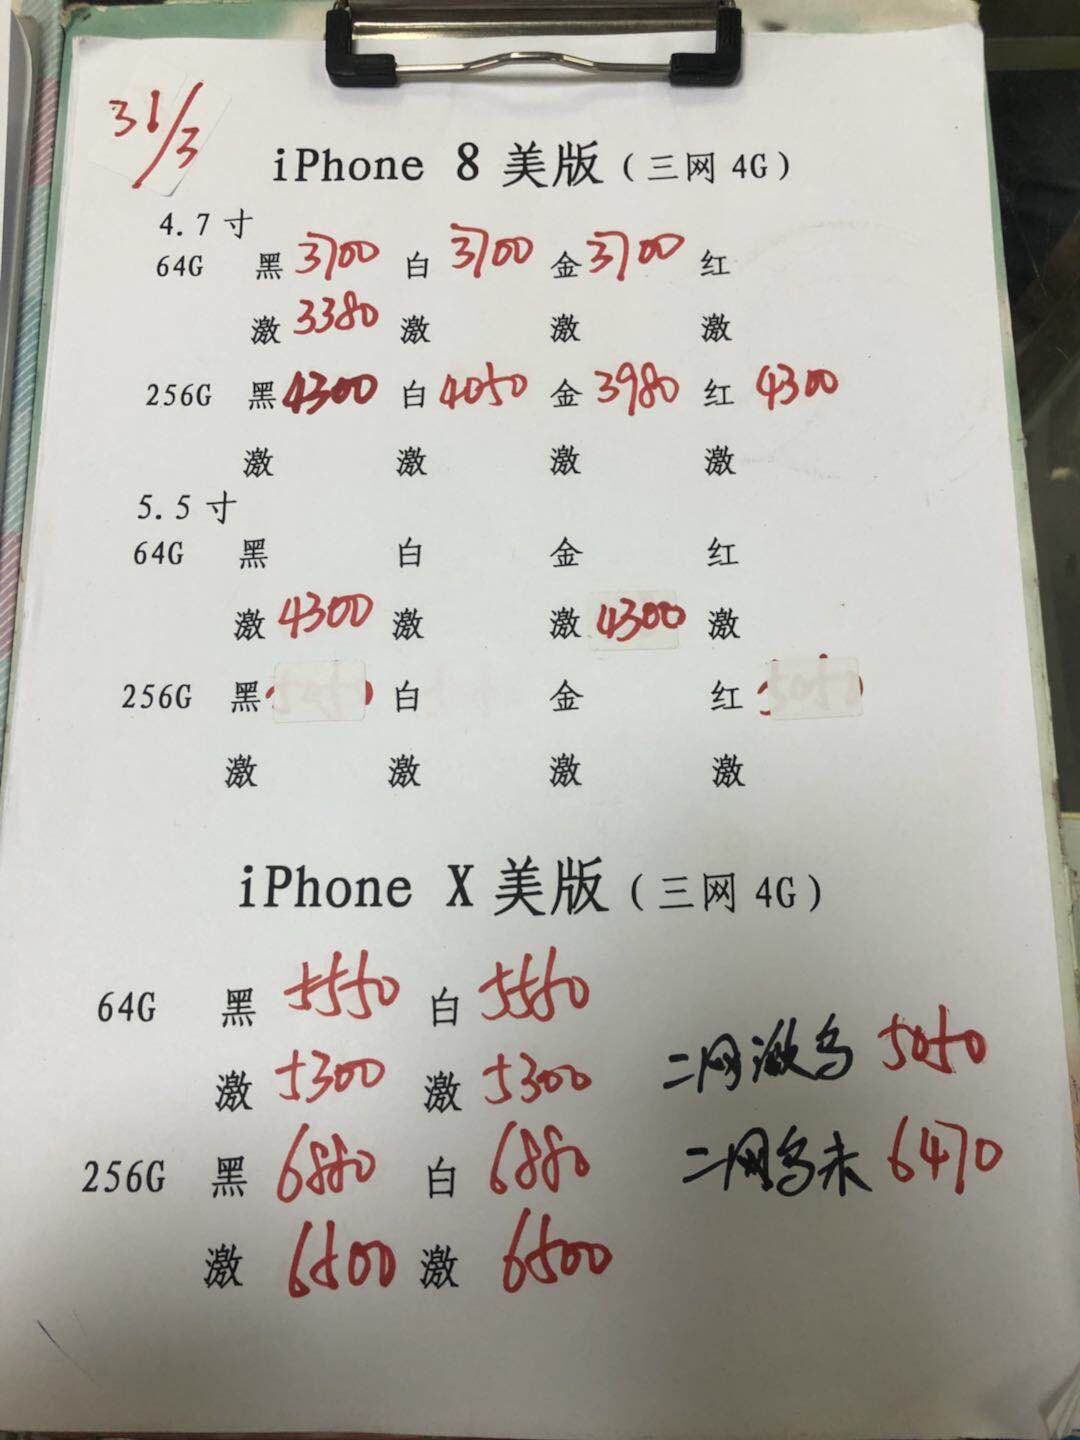 31/3
iPhone 8 美版（三网 4G）
4.7 寸
64G 黑 3700 白 3700 金 3700 红
激 3380 激 激 激
256G 黑 4300 白 4050 金 3980 红 4300
激 激 激 激
5.5 寸
64G 黑 白 金 红
激 4300 激 激 4300 激
256G 黑 白 金 红
激 激 激 激
iPhone X 美版（三网 4G）
64G 黑 5550 白 5550
激 5300 激 5300
二网激乌 5050
256G 黑 6880 白 6880
二网乌未 6470
激 6500 激 6500